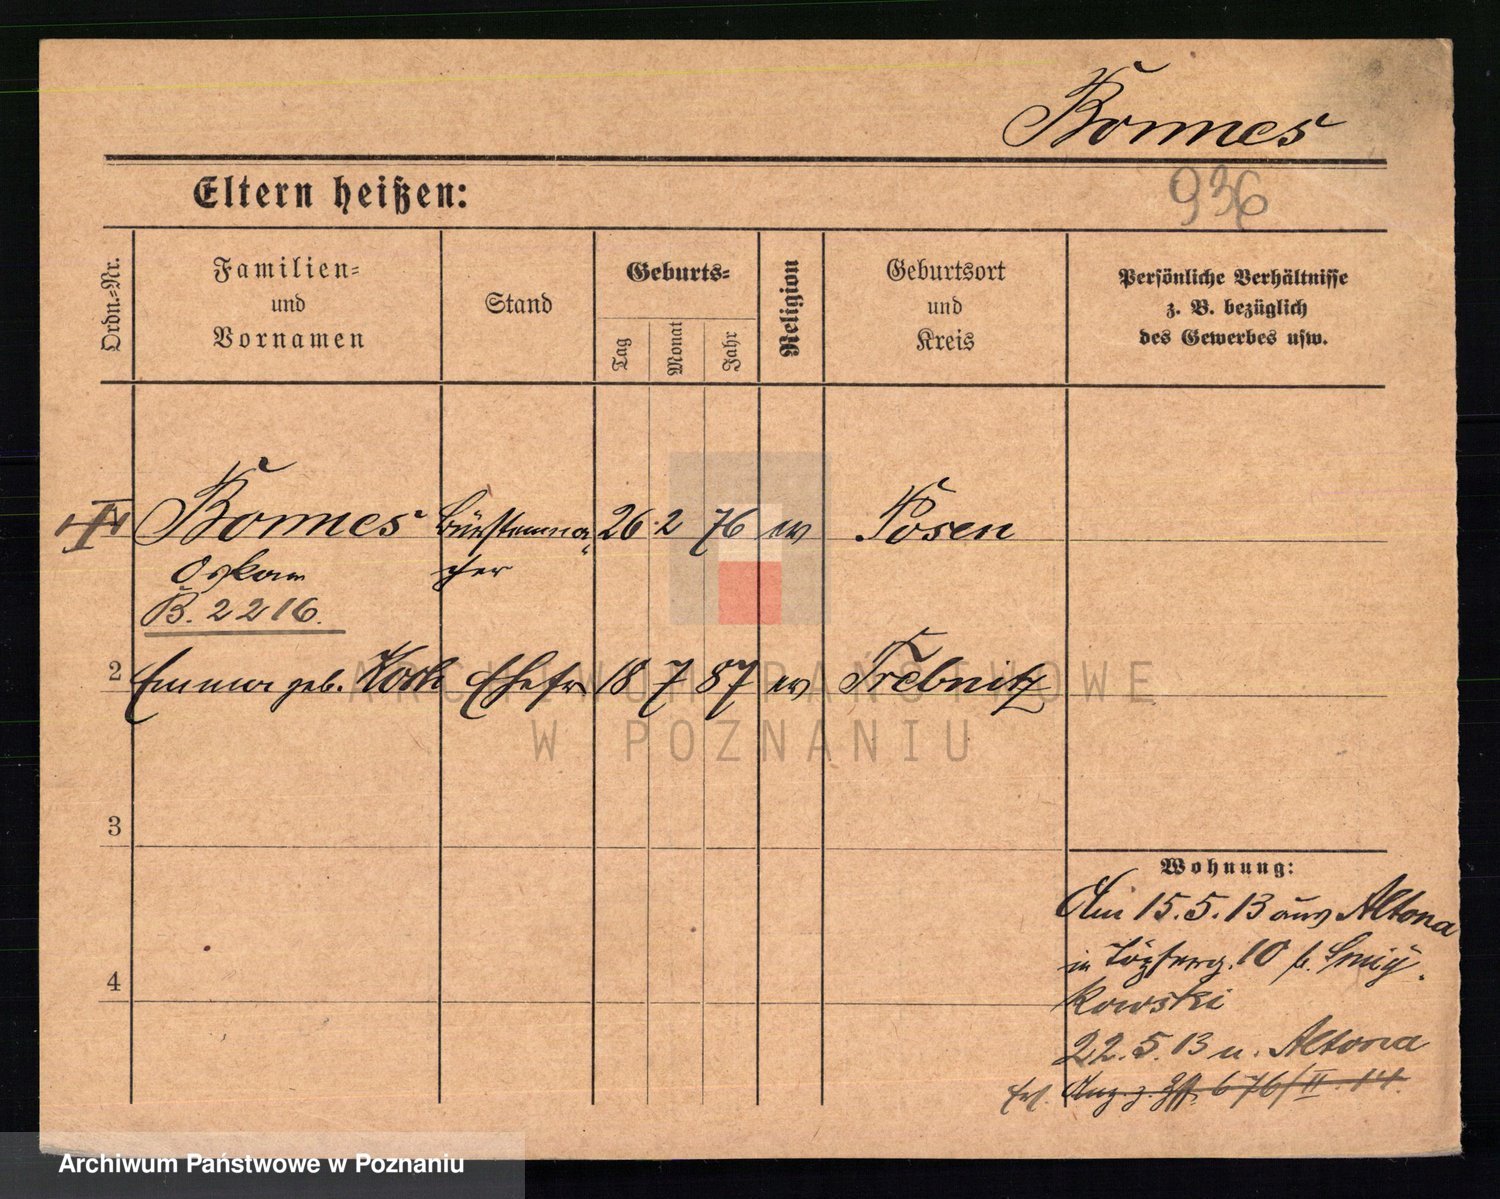 Bonnes
936
Eltern heißen:
Ordn.=Nr.
Familien=
und
Vornamen
Stand
Geburts=
Tag
Monat
Jahr
Religion
Geburtsort
und
Kreis
Persönliche Verhältnisse
z. B. bezüglich
des Gewerbes usw.
Bonnes Bürstenma= 26 2 76 ev Posen
Oskar cher
B. 2216.
2 Emma geb. Koch Ehefr 18 7 87 ev Trebnitz
3
4
Wohnung:
Am 15.5.13 aus Altona
in 10 b.
kowski
22.5.13 n. Altona
Anz. z. 676/II.14.
ARCHIWUM PAŃSTWOWE
W POZNANIU
Archiwum Państwowe w Poznaniu